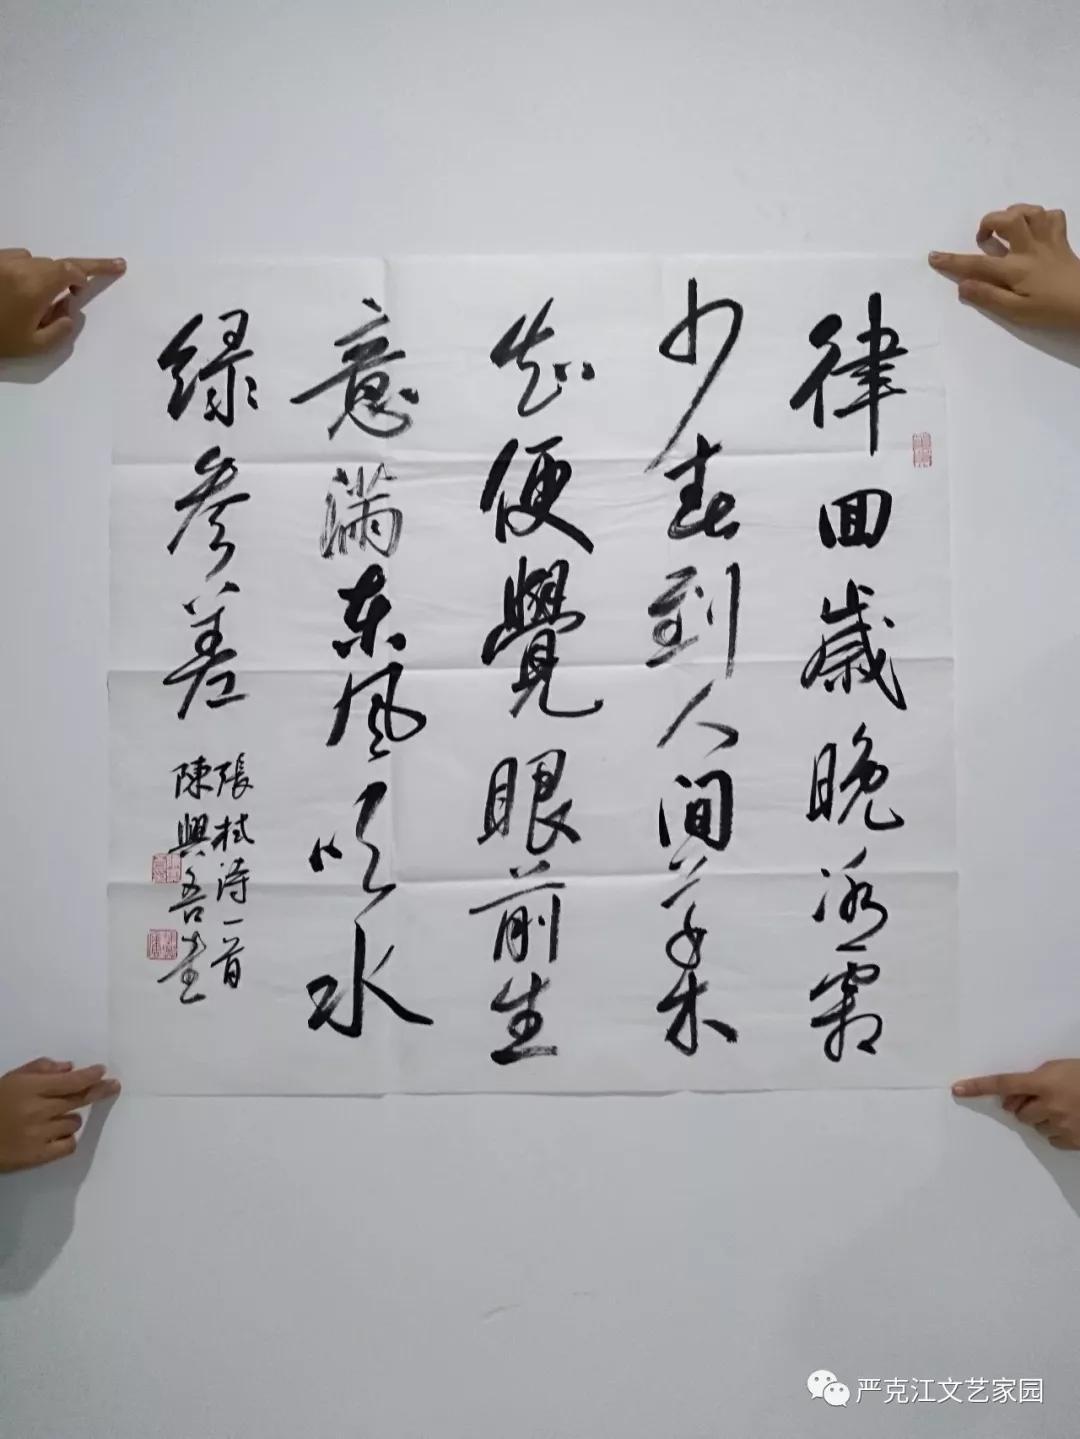 律回歲晚冰霜
少春到人间草木
知便覺眼前生
意满东风吹水
绿参差
張栻诗一首
陳興吾書
严克江文艺家园